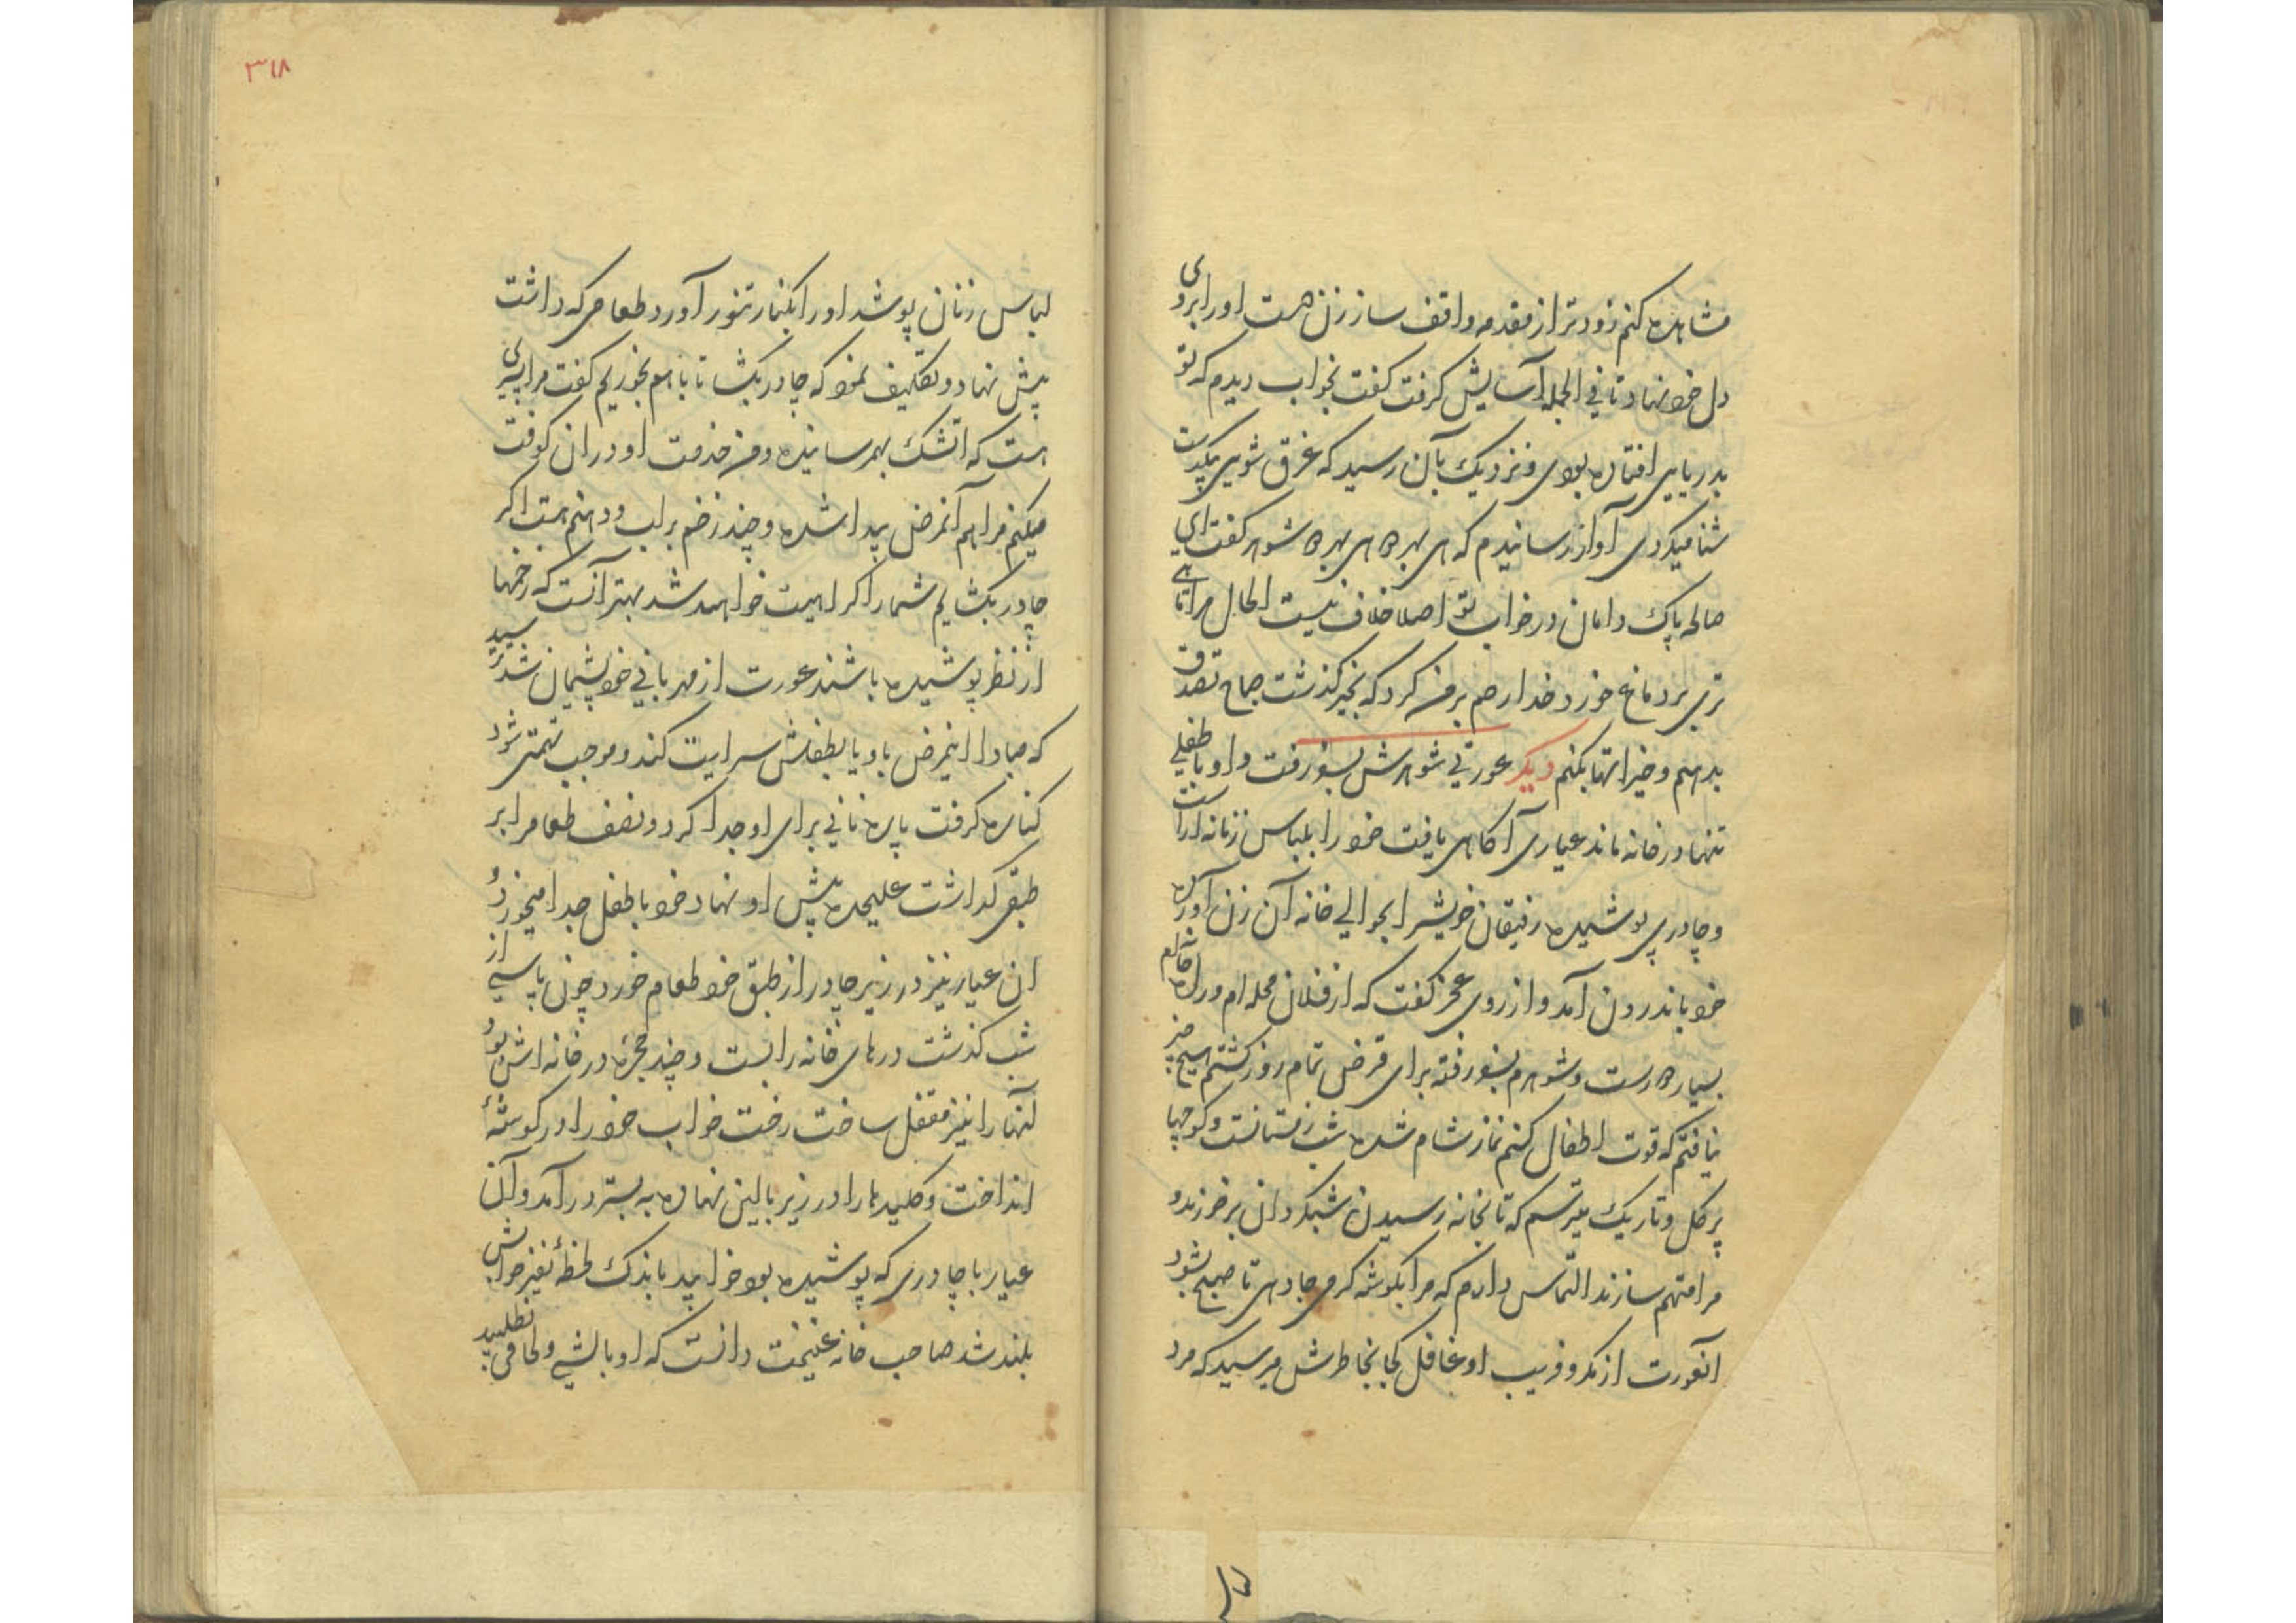 مشاهده کنم زودتر از مقدمه واقف ساز زن دست او را بروی
دل خود نهاد تا فی الجمله آسایش گرفت گفت بخواب دیدم که تو
بدریایی افتاده بودی و نزدیک بآن رسید که غرق شوی بیکدست
شنا میکردی آواز رساندم که ای بهره ای بهره شوهر گفت ای
صالحه پاک دامان در خواب تو اصلا خلاف نیست الحال مرا تا
تری بر دماغ خورد خدا رحم بر من کرد که بخیر گذشت صباح تصدق
بدهم و خیراتها بکنم دیگر عورتی شوهرش بسفر رفت و او با طفلی
تنها در خانه ماند عیاری آگاهی یافت خود را بلباس زنانه آراست
و چادری پوشیده رفیقان خویش را بحوالی خانه آن زن آورده
خود باندرون آمد و از روی عجز گفت که از فلان محله ام و راه خانه ام
بسیار دورست و شوهرم بسفر رفته برای قرض تمام روز گشتم هیچ چیز
نیافتم که قوت اطفال کنم نماز شام شده شب زمستانست و کوچها
پر گل و تاریک میترسم که تا بخانه رسیدن شبگردان برخورند و
مرا متهم سازند التماس دارم که مرا بگوشه گرمی جا دهی تا صبح بشود
آنعورت از مکر و فریب او غافل کجا بخاطرش میرسید که مرد
۳۱۸
لباس زنان پوشد او را بکنار تنور آورد طعامی که داشت
پیش نهاد و تکلیف نمود که چادر بکشا تا با هم بخوریم گفت مرا پسری
است که آتشک بهمرسانیده و من خدمت او در آن کوفت
میکنم مرا هم آنمرض پیدا شده و چند زخم بر لب و دهنم هست اگر
چادر بکشایم شما را کراهیت خواهد شد بهتر آنست که زخمها
از نظر پوشیده باشند عورت از مهربانی خود پشیمان شد ترسید
که مبادا اینمرض باو یا بطفلش سرایت کند و موجب تهمتی شود
کناره گرفت پاره نانی برای او جدا کرد و نصف طعام را بر
طبقی گذاشت علیحده پیش او نهاد خود با طفل جدا میخورد و
آن عیار نیز در زیر چادر از طبق خود طعام خورد چون پاسی از
شب گذشت درهای خانه را بست و چند حجره در خانه اش بود
آنها را نیز مقفل ساخت رخت خواب خود را در گوشهٔ
انداخت و کلیدها را در زیر بالین نهاده به بستر درآمد و آن
عیار با چادری که پوشیده بود خوابید باندک لحظهٔ نفیر خوابش
بلند شد صاحب خانه غنیمت دانست که او بالشی و لحافی نطلبید